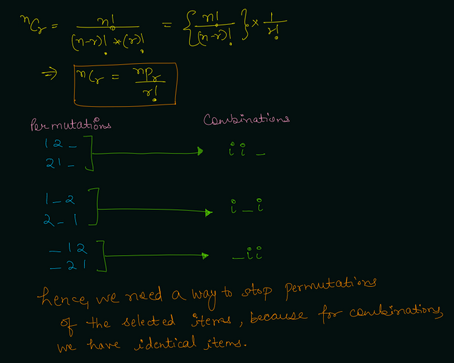 ⁿCᵣ = n! / (n-r)! * (r)! = {n! / (n-r)!} × 1/r!
⇒ ⁿCᵣ = nPᵣ / r!
Permutations Combinations
1 2 _
2 1 _ i i _
1 _ 2
2 _ 1 i _ i
_ 1 2
_ 2 1 _ i i
hence, we need a way to stop permutations
of the selected items, because for combinations,
we have identical items.